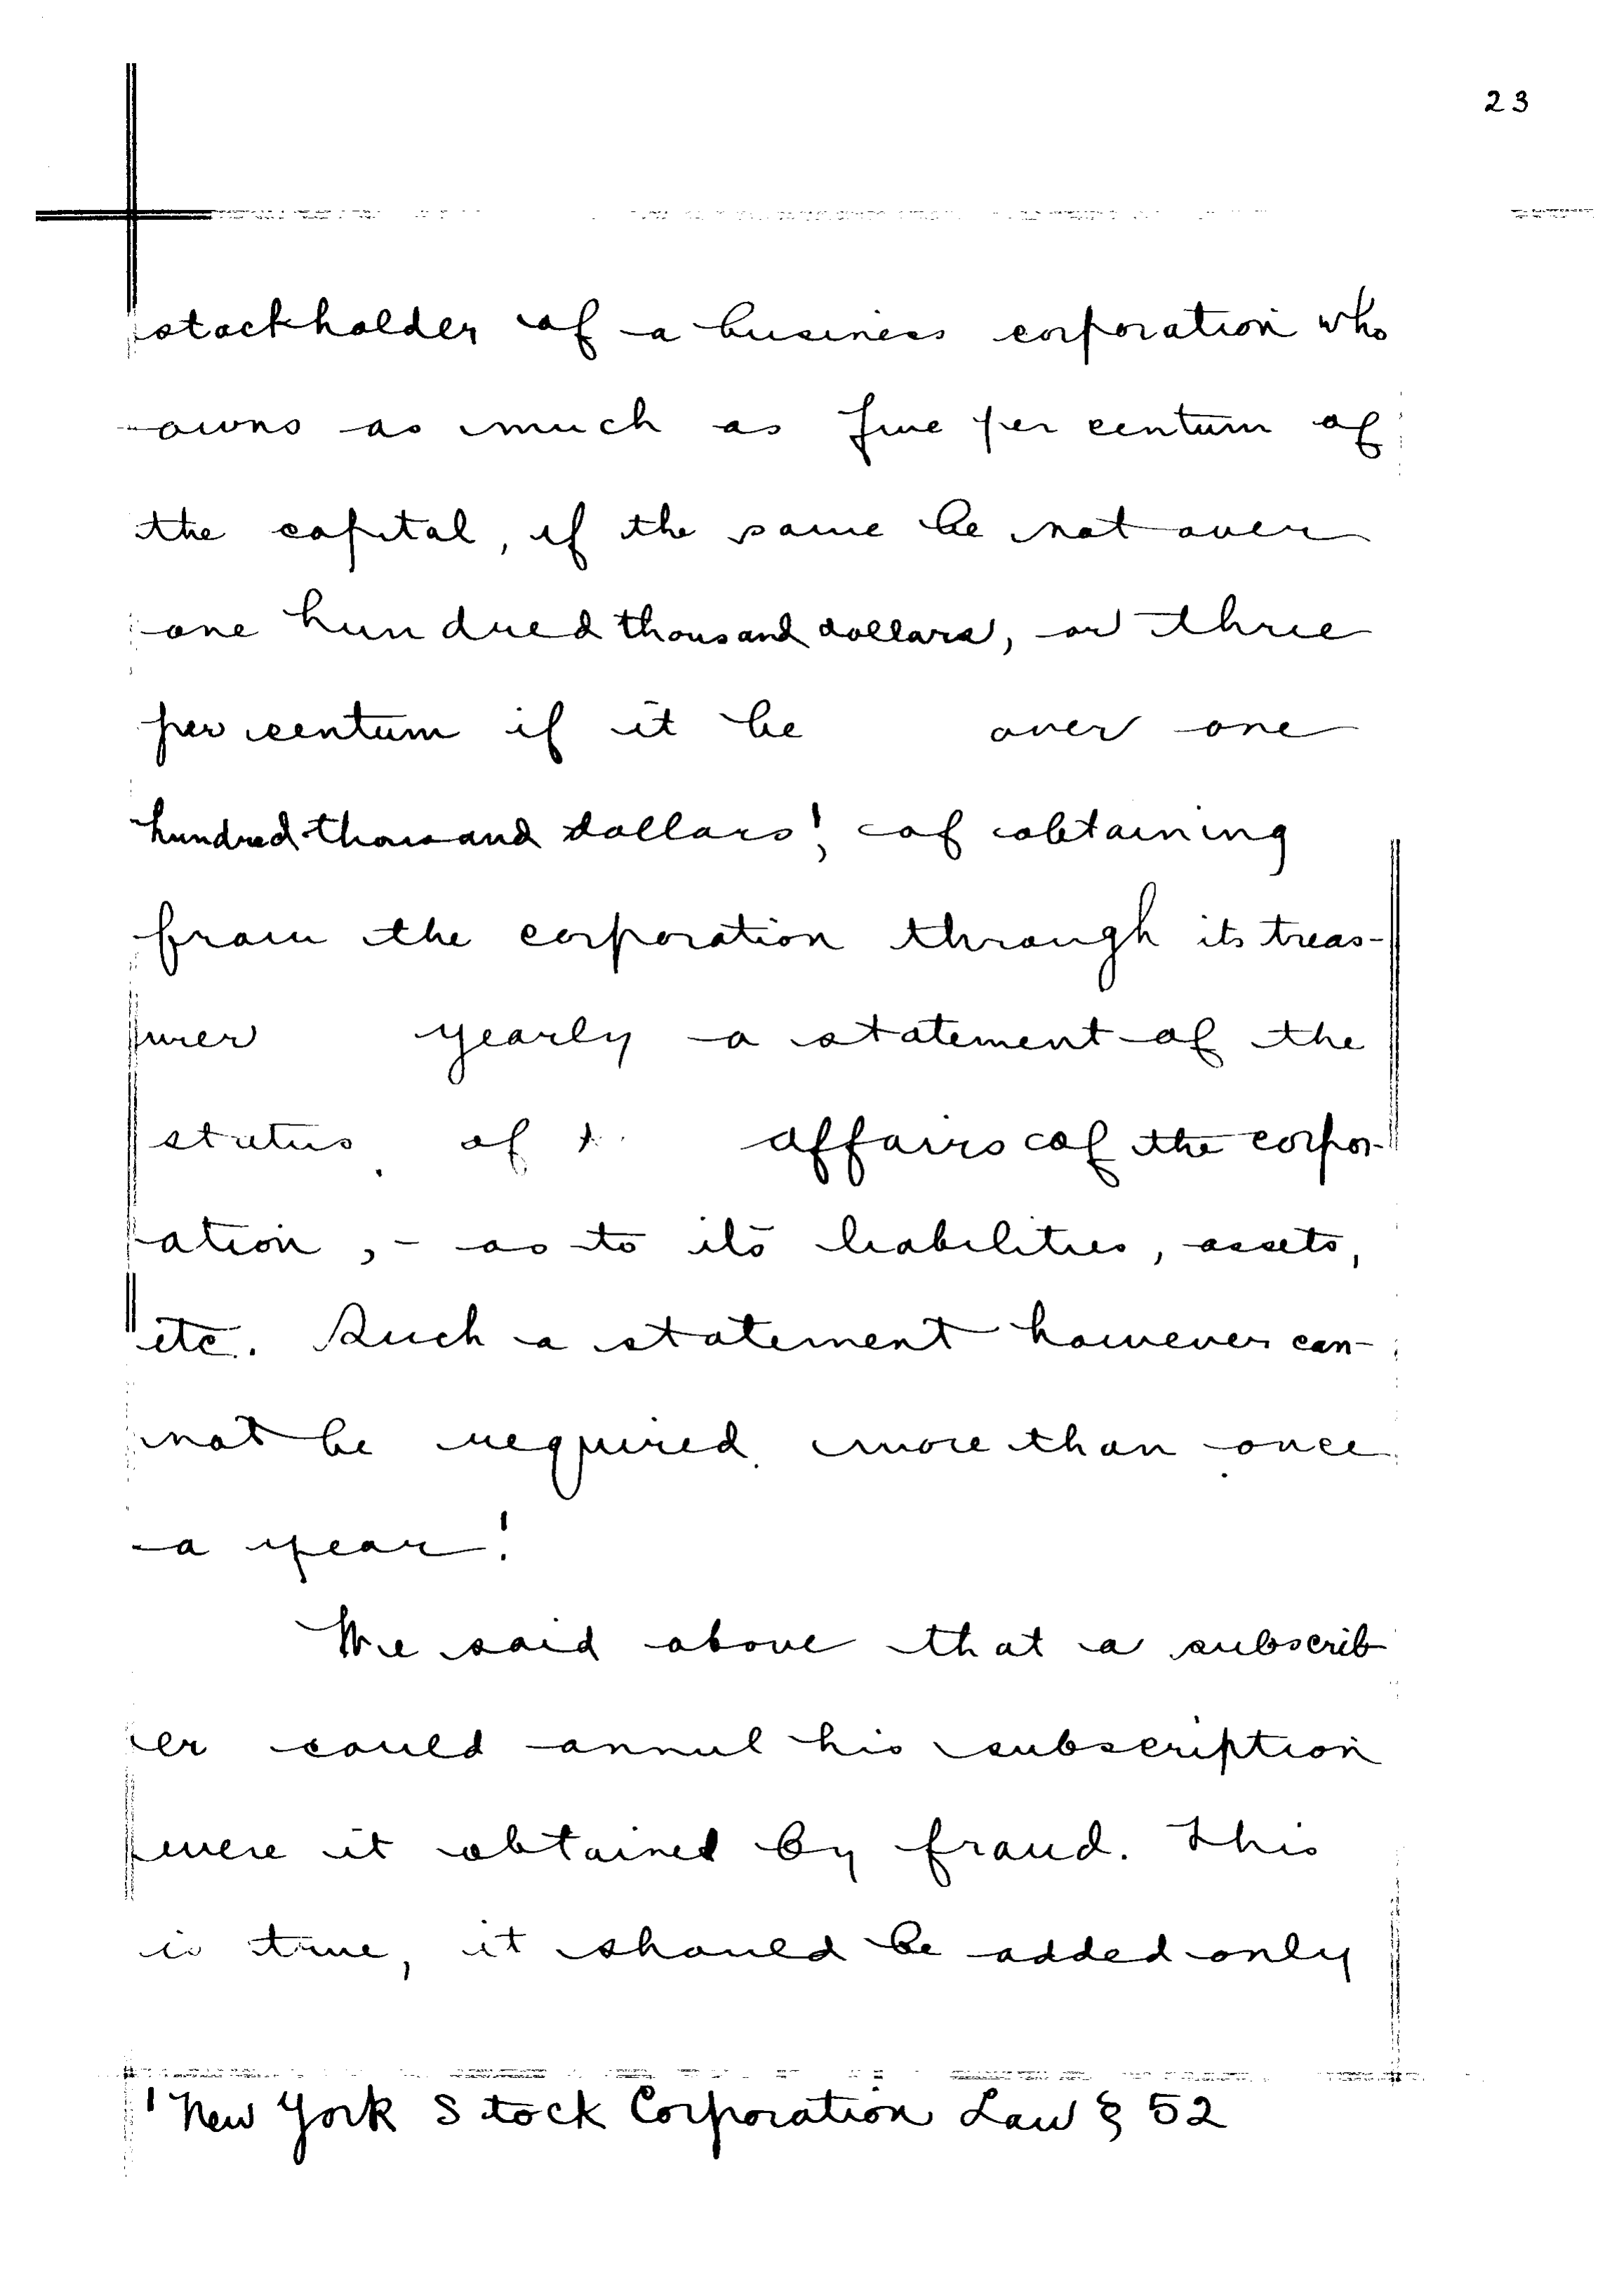 23
stockholder of a business corporation who
owns as much as five per centum of
the capital, if the same be not over
one hundred thousand dollars, or three
per centum if it be over one
hundred thousand dollars¹, of obtaining
from the corporation through its treas-
urer yearly a statement of the
status of affairs of the corpor-
ation, - as to its liabilities, assets,
etc. Such a statement however can-
not be required more than once
a year.¹
We said above that a subscrib
er could annul his subscription
were it obtained by fraud. This
is true, it should be added only
¹ New York Stock Corporation Law § 52